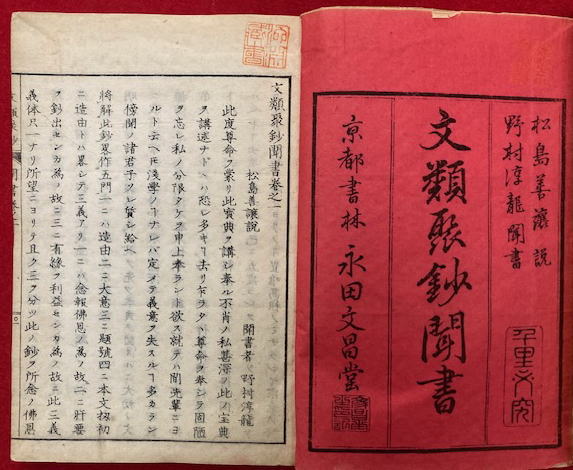 松島善譲説
野村淳龍聞書
文類聚鈔聞書
京都書林 永田文昌堂
文類聚鈔聞書巻之一
松島善譲説
聞書者 野村淳龍
此度尊命ヲ蒙リ此寶典ヲ講シ奉ル不肖ノ私甚深ノ此ノ宝典
ヲ講述ナドヽハ恐レ多キ
尊命ヲ奉シラ固陋
ヲ忘レ私ノ分限タケヲ申上奉ラント欲ス就テハ間先輩ニヨ
ルト云ヘトモ浅學ノ
ナレバ定メテ義意ヲ失スル
多カラン
傍聞ノ諸君子
レ質シ給ヘ
將解此鈔畧作五門一ニハ造由二ニ大意三ニ題號四ニ本文
初
ニ造由トハ畧シテ三義アリ一ニハ念報佛恩ノ為ノ故二ニ肝要
ヲ鈔出センカ為ノ故ニ三ニ有縁ヲ利益センカ為ノ故ニ此三義
義体只一ナリ所望ニヨリテ且ク三ヲ分ツ此ノ鈔ヲ所念ノ佛恩